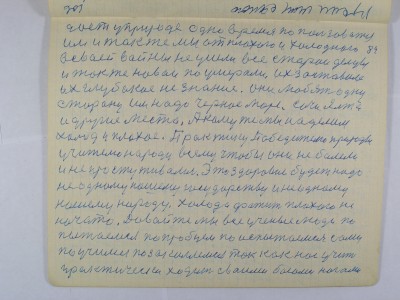 даст у природе одно время по пользоватся
им и также мы от плохого и холодного 84
всего они не умели все старое
и также новая по умирали их заставило
их глубокое не знание. Они любят одну
сторону им надо Черное море, Сочи Ялта
и другие места. А кому же мы наделим
холод и плохое. Практику Победителя природы
учителю народу всему чтобы они не болели
и не простуживались. Это здоровье будет надо
не одному нашему государству и не одному
нашему народу. Холода хватит плохого не
початого. Давайте мы все ученые люди по
пытаемся по пробуем по испытаемся сами
по учимся по закаляемся так как нас учит
практически ходить своими босыми ногами